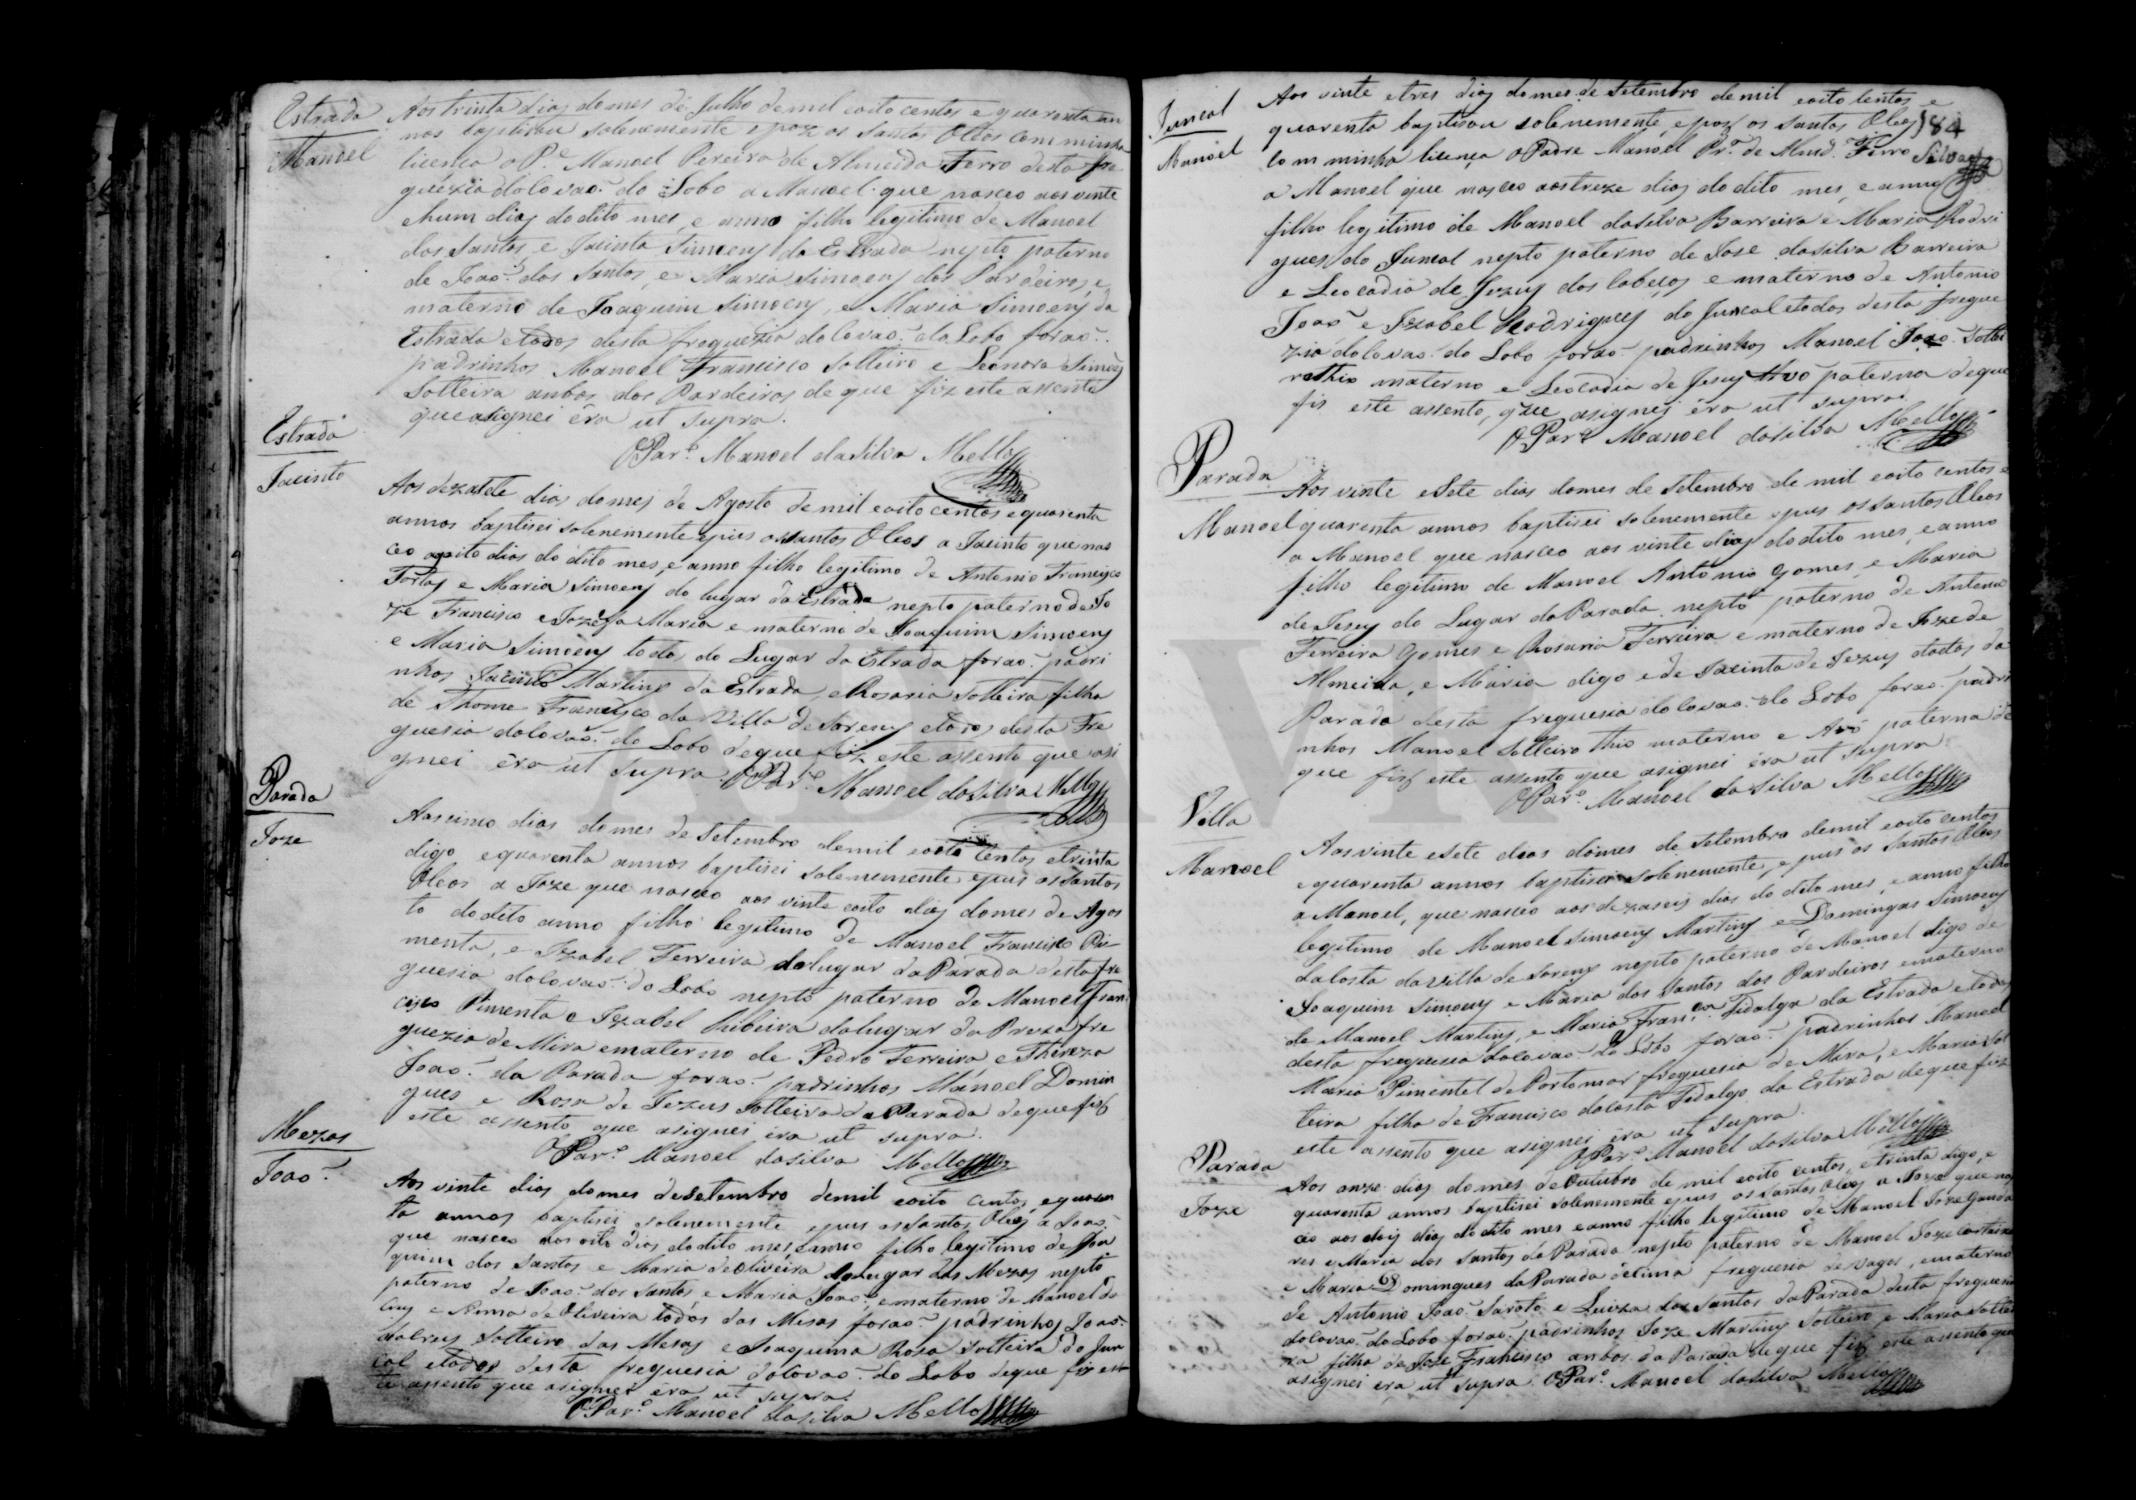 Estrada
Manoel
Aos trinta dias do mes de Julho de mil e oito centos e quarenta an
nos baptizou solenemente e poz os Santos Oleos com minha
licença o P.e Manoel Pereira de Almeida Ferro desta fre
guezia do Covaõ do Lobo a Manoel que nasceo aos vinte
e hum dias do dito mes, e anno filho legitimo de Manoel
dos Santos, e Jacinta Simoens da Estrada nepto paterno
de Joaõ dos Santos, e Maria Simoens dos Pardeiros, e
materno de Joaquim Simoens, e Maria Simoens da
Estrada e todos desta freguezia do Covaõ do Lobo foraõ
padrinhos Manoel Francisco Solteiro e Leonora Simoens
Solteira anbos dos Pardeiros de que fiz este assento
que asignei éra ut supra.
O Par.º Manoel da Silva Mello
Estrada
Jacinto
Aos dezasete dias do mes de Agosto de mil e oito centos e quarenta
annos baptisei solenemente e pus os santos Oleos a Jacinto que nas
ceo a oito dias do dito mes, e anno filho legitimo de Antonio Francisco
Tortas e Maria Simoens do lugar da Estrada nepto paterno de Jo
ze Francisco e Jozefa Maria e materno de Joaquim Simoens
e Maria Simoens todos do Lugar da Estrada foraõ padri
nhos Jacinto Martins da Estrada, e Rosaria Solteira filha
de Thome Francisco da Villa de Sorens e todos desta Fre
guesia do Covaõ do Lobo de que fiz este assento que asi
gnei éra ut supra O Par.º Manoel da Silva Mello
Parada
Joze
Aos cinco dias do mes de Setembro de mil e oito centos e trinta
digo e quarenta annos baptisei solenemente e pus os santos
Oleos a Joze que nasceo aos vinte e oito dias do mes de Agos
to do dito anno filho legitimo de Manoel Francisco Pi
menta, e Izabel Ferreira do lugar da Parada desta fre
guesia do Covaõ do Lobo nepto paterno de Manoel Fran
cisco Pimenta e Izabel Ribeira do lugar da Preza fre
guezia de Mira e materno de Pedro Ferreira, e Thereza
Joaõ da Parada foraõ padrinhos Manoel Domin
gues e Rosa de Jezus Solteira da Parada de que fiz
este assento que asignei éra ut supra.
O Par.º Manoel da Silva Mello
Mezas
Joaõ
Aos vinte dias do mes de Setembro de mil e oito centos, e quaren
ta annos baptisei solenemente e pus os Santos Oleos a Joaõ
que nasceo aos oito dias do dito mes, e anno filho legitimo de Joa
quim dos Santos e Maria de Oliveira do lugar das Mezas nepto
paterno de Joaõ dos Santos e Maria Joaõ, e materno de Manoel da
Cruz e Anna de Oliveira todos das Mesas foraõ padrinhos Joaõ
da Cruz Solteiro das Mesas e Joaquina Rosa Solteira do Jun
cal e todos desta freguesia do Covaõ do Lobo de que fiz es
te assento que asignei éra ut supra.
O Par.º Manoel da Silva Mello
Juncal
Manoel
184
Silva
Aos vinte e tres dias do mes de Setembro de mil e oito centos e
quarenta baptisou solenemente, e poz os santos Oleos
com minha licença o Padre Manoel Pr.ª de Almd.ª Ferro
a Manoel que nasceo aos treze dias do dito mes, e anno
filho legitimo de Manoel da Silva Barreira e Maria Rodri
gues do Juncal nepto paterno de Jose da Silva Barreira
e Leocadia de Jezus dos Cabeços e materno de Antonio
Joaõ e Izabel Rodrigues do Juncal e todos desta fregue
zia do Covaõ do Lobo foraõ padrinhos Manoel Joaõ Soltei
ro thio materno e Leocadia de Jesus Avó paterna de que
fis este assento, que asignei éra ut supra.
O Par.º Manoel da Silva Mello
Parada
Manoel
Aos vinte e Sete dias do mes de Setembro de mil e oito centos e
quarenta annos baptisei solenemente e pus os santos Oleos
a Manoel que nasceo aos vinte dias do dito mes, e anno
filho legitimo de Manoel Antonio Gomes, e Maria
de Jesus do Lugar da Parada nepto paterno de Antonio
Ferreira Gomes e Rosaria Ferreira e materno de Joze de
Almeida, e Maria digo e de Jacinta de Jezus todos da
Parada desta freguesia do Covaõ do Lobo foraõ padri
nhos Manoel Solteiro thio materno e Avó paterna de
que fiz este assento que asignei éra ut supra
O Par.º Manoel da Silva Mello
Villa
Manoel
Aos vinte e Sete dias do mes de Setembro de mil e oito centos
e quarenta annos baptisei solenemente, e pus os Santos Oleos
a Manoel, que nasceo aos dezaseis dias do dito mes, e anno filho
legitimo de Manoel Simoens Martins e Domingas Simoens
da Costa da Villa de Sorens nepto paterno de Manoel digo de
Joaquim Simoens e Maria dos Santos dos Pardeiros e materno
de Manoel Martins, e Maria Fran.ca Fidalga da Estrada e todos
desta freguesia do Covaõ do Lobo foraõ padrinhos Manoel
Maria Pimentel de Portomar freguesia de Mira, e Maria Sol
teira filha de Francisco da Costa Fidalgo da Estrada de que fiz
este assento que asignei éra ut supra.
O Par.º Manoel da Silva Mello
Parada
Joze
Aos onze dias do mes de Outubro de mil e oito centos, e trinta digo, e
quarenta annos baptisei solenemente e pus os santos Oleos a Joze que nas
ceo aos dois dias do dito mes e anno filho legitimo de Manoel Joze Ganda
res e Maria dos Santos da Parada nepto paterno de Manoel Joze
e Maria Domingues da Parada de Cima freguesia de Vagos, e materno
de Antonio Joaõ Saroto e Luiza dos Santos da Parada desta freguesia
do Covaõ do Lobo foraõ padrinhos Joze Martins Solteiro e Maria Soltei
ra filha de Joze Francisco anbos da Parada de que fiz este assento que
asignei éra ut supra. O Par.º Manoel da Silva Mello